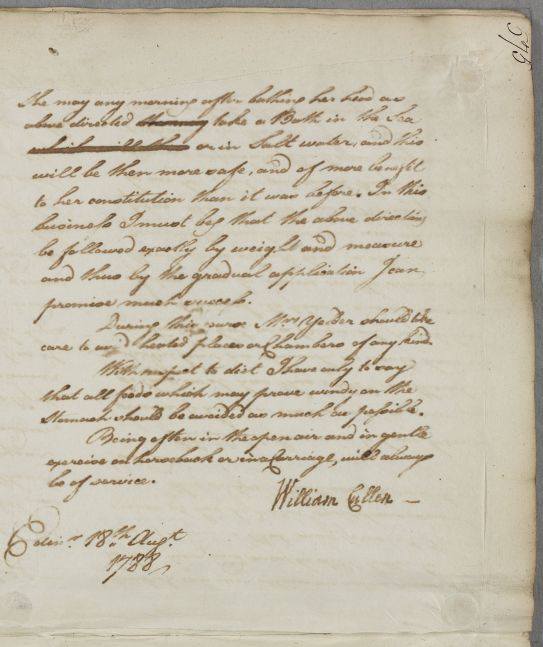 345
She may any morning after bathing her head as
above directed take a Bath in the Sea
or in Salt water, and this
will be then more safe, and of more benefit
to her constitution than it was before. In this
business I must beg that the above directions
be followed exactly by weight and measure
and thus by the gradual application I can
promise much success.
During this course Mrs. should take
care to avoid heated places or Chambers of any kind.
With respect to diet I have only to say
that all foods which may prove windy on the
stomach should be avoided as much as possible.
Being often in the open air and in gentle
exercise on horseback or in a Carriage, will always
be of service.
William Cullen
Edinr. 18th. Augt.
1788